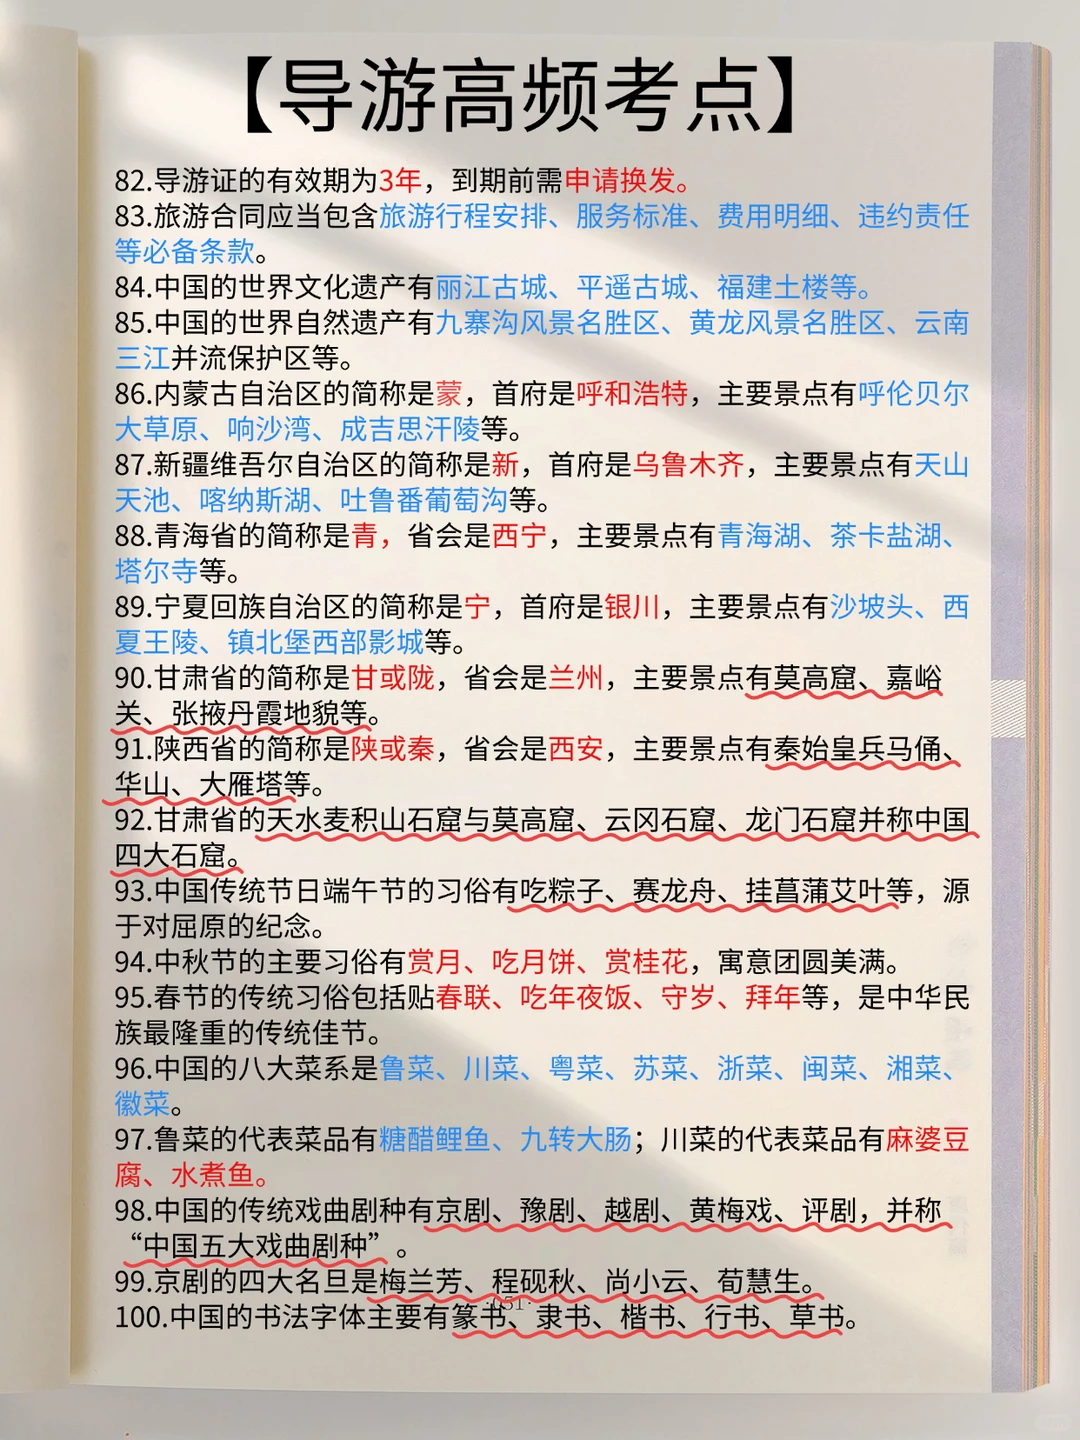 【导游高频考点】
82.导游证的有效期为3年，到期前需申请换发。
83.旅游合同应当包含旅游行程安排、服务标准、费用明细、违约责任
等必备条款。
84.中国的世界文化遗产有丽江古城、平遥古城、福建土楼等。
85.中国的世界自然遗产有九寨沟风景名胜区、黄龙风景名胜区、云南
三江并流保护区等。
86.内蒙古自治区的简称是蒙，首府是呼和浩特，主要景点有呼伦贝尔
大草原、响沙湾、成吉思汗陵等。
87.新疆维吾尔自治区的简称是新，首府是乌鲁木齐，主要景点有天山
天池、喀纳斯湖、吐鲁番葡萄沟等。
88.青海省的简称是青，省会是西宁，主要景点有青海湖、茶卡盐湖、
塔尔寺等。
89.宁夏回族自治区的简称是宁，首府是银川，主要景点有沙坡头、西
夏王陵、镇北堡西部影城等。
90.甘肃省的简称是甘或陇，省会是兰州，主要景点有莫高窟、嘉峪
关、张掖丹霞地貌等。
91.陕西省的简称是陕或秦，省会是西安，主要景点有秦始皇兵马俑、
华山、大雁塔等。
92.甘肃省的天水麦积山石窟与莫高窟、云冈石窟、龙门石窟并称中国
四大石窟。
93.中国传统节日端午节的习俗有吃粽子、赛龙舟、挂菖蒲艾叶等，源
于对屈原的纪念。
94.中秋节的主要习俗有赏月、吃月饼、赏桂花，寓意团圆美满。
95.春节的传统习俗包括贴春联、吃年夜饭、守岁、拜年等，是中华民
族最隆重的传统佳节。
96.中国的八大菜系是鲁菜、川菜、粤菜、苏菜、浙菜、闽菜、湘菜、
徽菜。
97.鲁菜的代表菜品有糖醋鲤鱼、九转大肠；川菜的代表菜品有麻婆豆
腐、水煮鱼。
98.中国的传统戏曲剧种有京剧、豫剧、越剧、黄梅戏、评剧，并称
“中国五大戏曲剧种”。
99.京剧的四大名旦是梅兰芳、程砚秋、尚小云、荀慧生。
100.中国的书法字体主要有篆书、隶书、楷书、行书、草书。